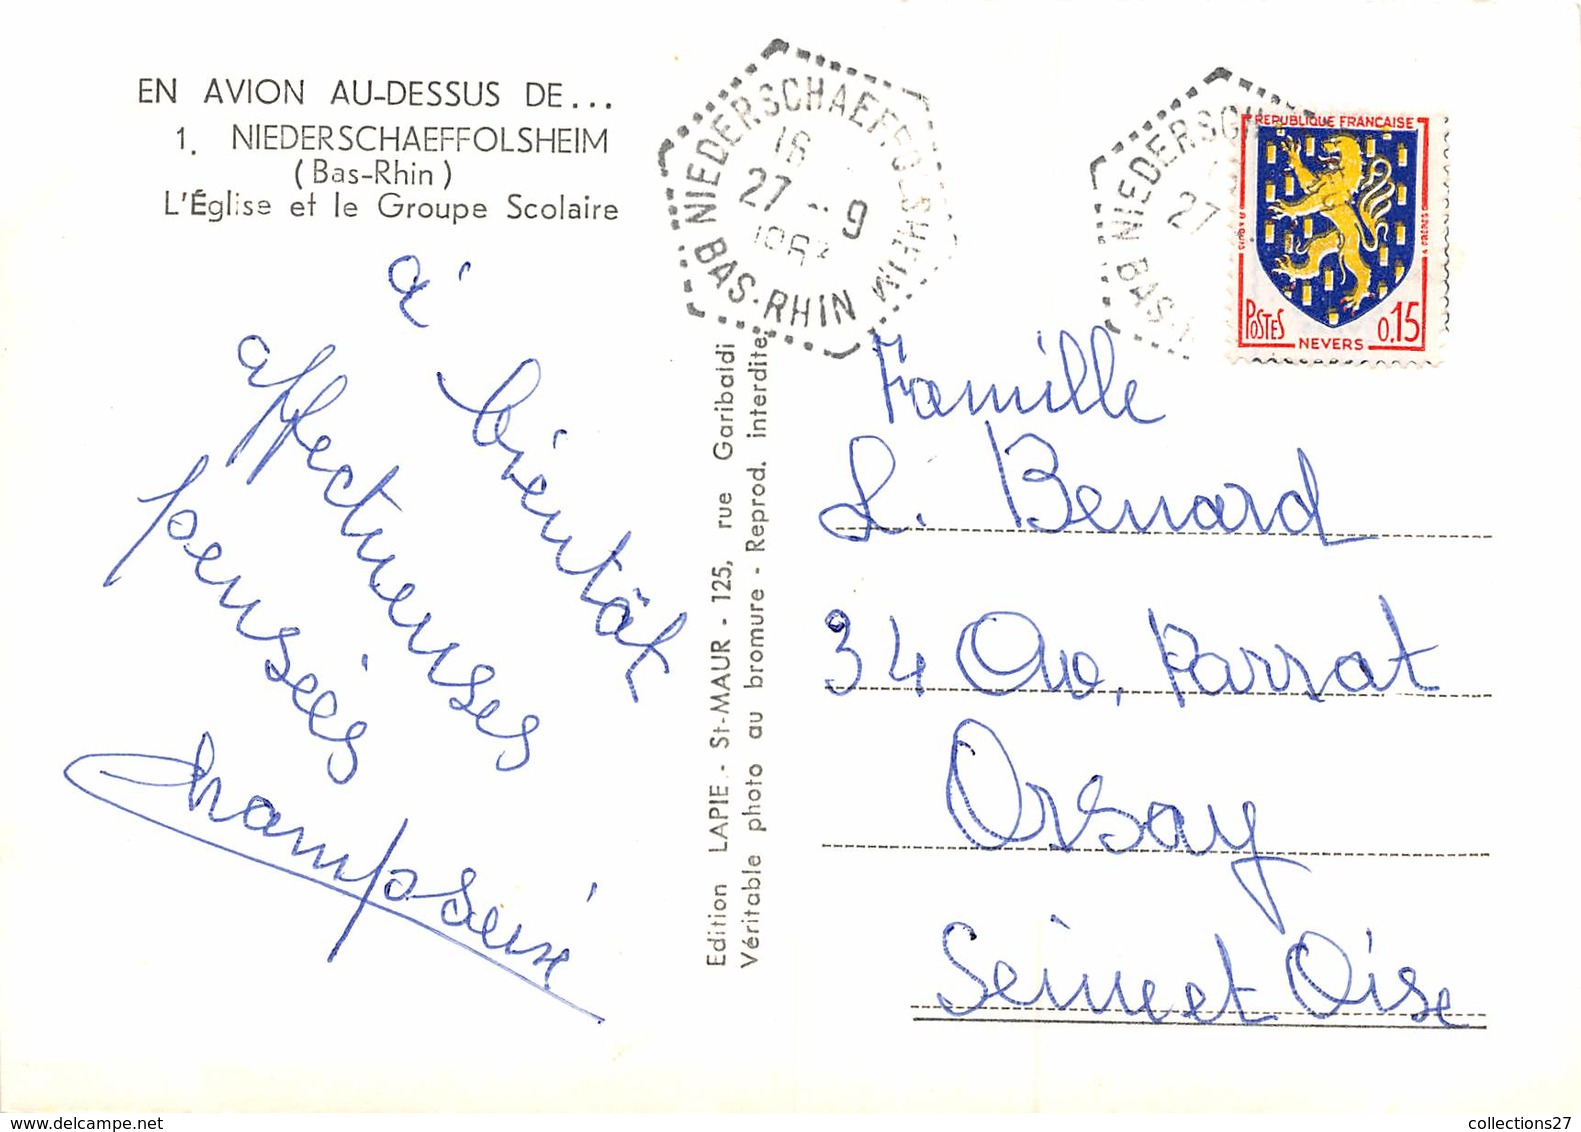 EN AVION AU-DESSUS DE...
1. NIEDERSCHAEFFOLSHEIM
(Bas-Rhin)
L'Église et le Groupe Scolaire
à bientôt
affectueuses
pensées
Edition LAPIE - St-MAUR - 125, rue Garibaldi
Véritable photo au bromure - Reprod. interdite
NIEDERSCHAEFFOLSHEIM
16
27 - 9
1963
BAS-RHIN
NIEDERSCH
27
BAS-R
REPUBLIQUE FRANCAISE
POSTES
0,15
NEVERS
Famille
L. Benard
34 Av. Parrat
Orsay
Seine et Oise
collections27